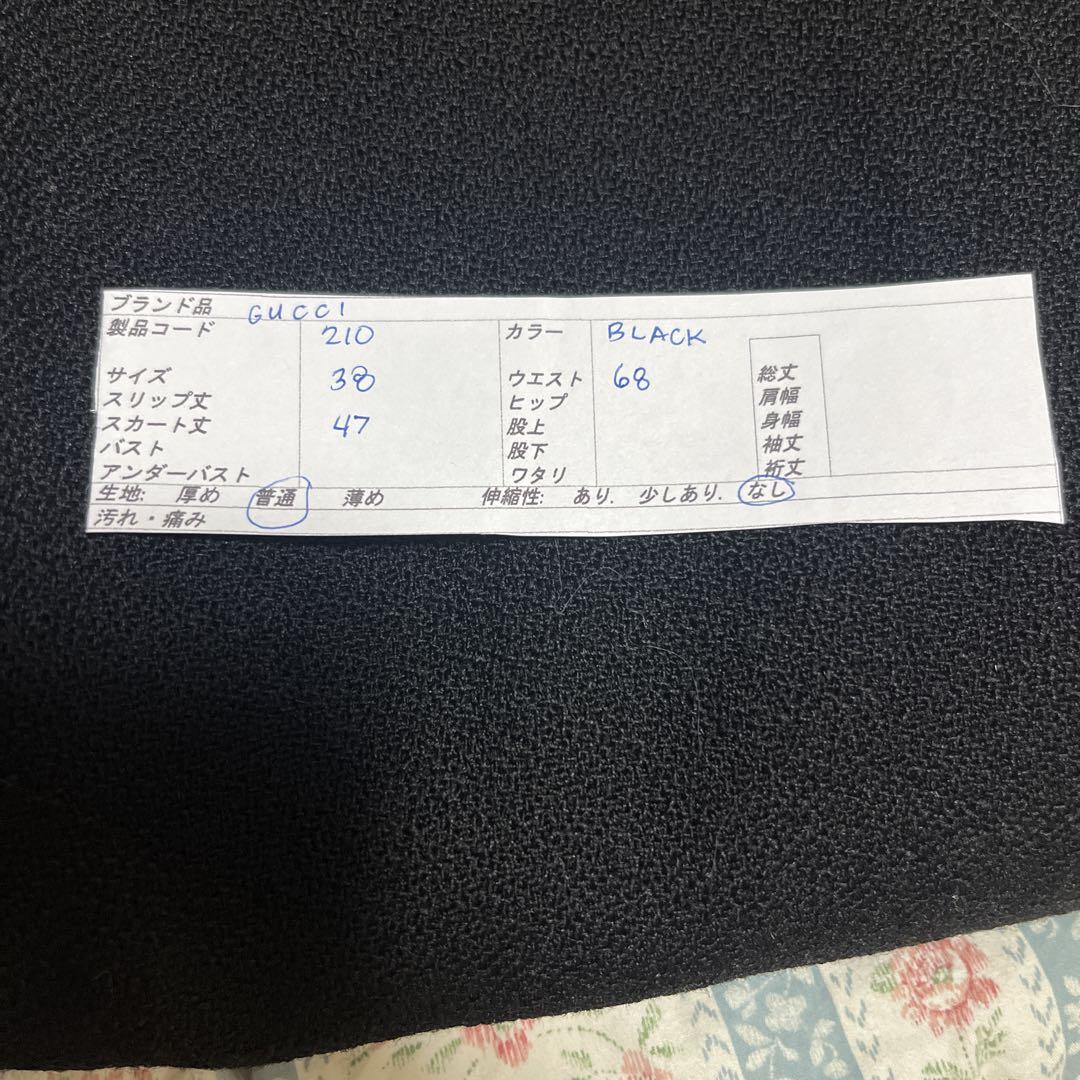 ブランド品 GUCCI
製品コード 210 カラー BLACK
サイズ 38 ウエスト 68 総丈
スリップ丈 ヒップ 肩幅
スカート丈 47 股上 身幅
バスト 股下 袖丈
アンダーバスト ワタリ 裄丈
生地: 厚め 普通 薄め 伸縮性: あり. 少しあり. なし
汚れ・痛み